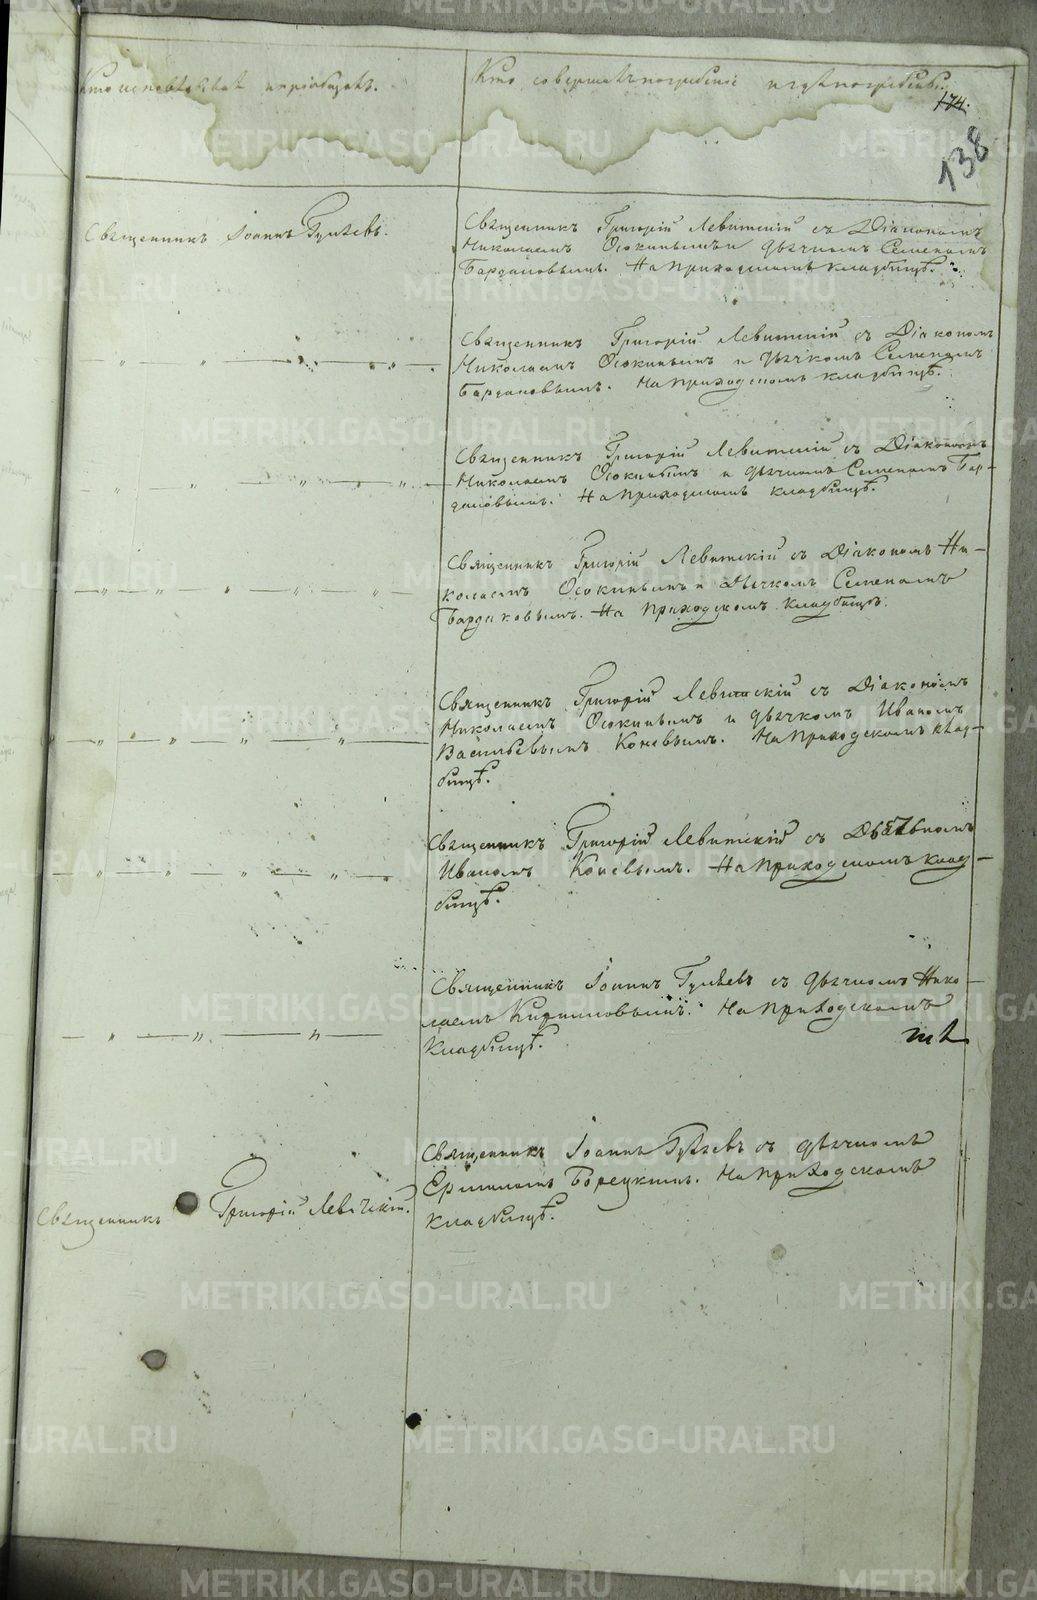 Кто исповѣдывалъ и пріобщалъ.
Кто совершалъ погребеніе и гдѣ погребены.
174.
138
Священникъ Іоаннъ Гуляевъ.
Священникъ Григорій Левитскій съ Діакономъ
Николаемъ Осокинымъ и дьячкомъ Семеномъ
Бардаковымъ. На приходскомъ кладбищѣ.
— „ — „ — „ — „ —
Священникъ Григорій Левитскій съ Діакономъ
Николаемъ Осокинымъ и дьячкомъ Семеномъ
Бардаковымъ. На приходскомъ кладбищѣ.
— „ — „ — „ — „ —
Священникъ Григорій Левитскій съ Діакономъ
Николаемъ Осокинымъ и дьячкомъ Семеномъ Бар-
даковымъ. На приходскомъ кладбищѣ.
— „ — „ — „ — „ —
Священникъ Григорій Левитскій съ Діакономъ Ни-
колаемъ Осокинымъ и Дьячкомъ Семеномъ
Бардаковымъ. На приходскомъ кладбищѣ.
— „ — „ — „ — „ —
Священникъ Григорій Левитскій съ Діакономъ
Николаемъ Осокинымъ и дьячкомъ Иваномъ
Васильевымъ Коневымъ. На приходскомъ клад-
бищѣ.
— „ — „ — „ — „ —
Священникъ Григорій Левитскій съ Дьячкомъ
Иваномъ Коневымъ. На приходскомъ клад-
бищѣ.
— „ — „ — „ —
Священникъ Іоаннъ Гуляевъ съ дьячкомъ Нико-
лаемъ Кирилловымъ. На приходскомъ
кладбищѣ.
Священникъ Григорій Левитскій.
Священникъ Іоаннъ Гуляевъ съ дьячкомъ
Ермиломъ Борецкимъ. На приходскомъ
кладбищѣ.
METRIKI.GASO-URAL.RU